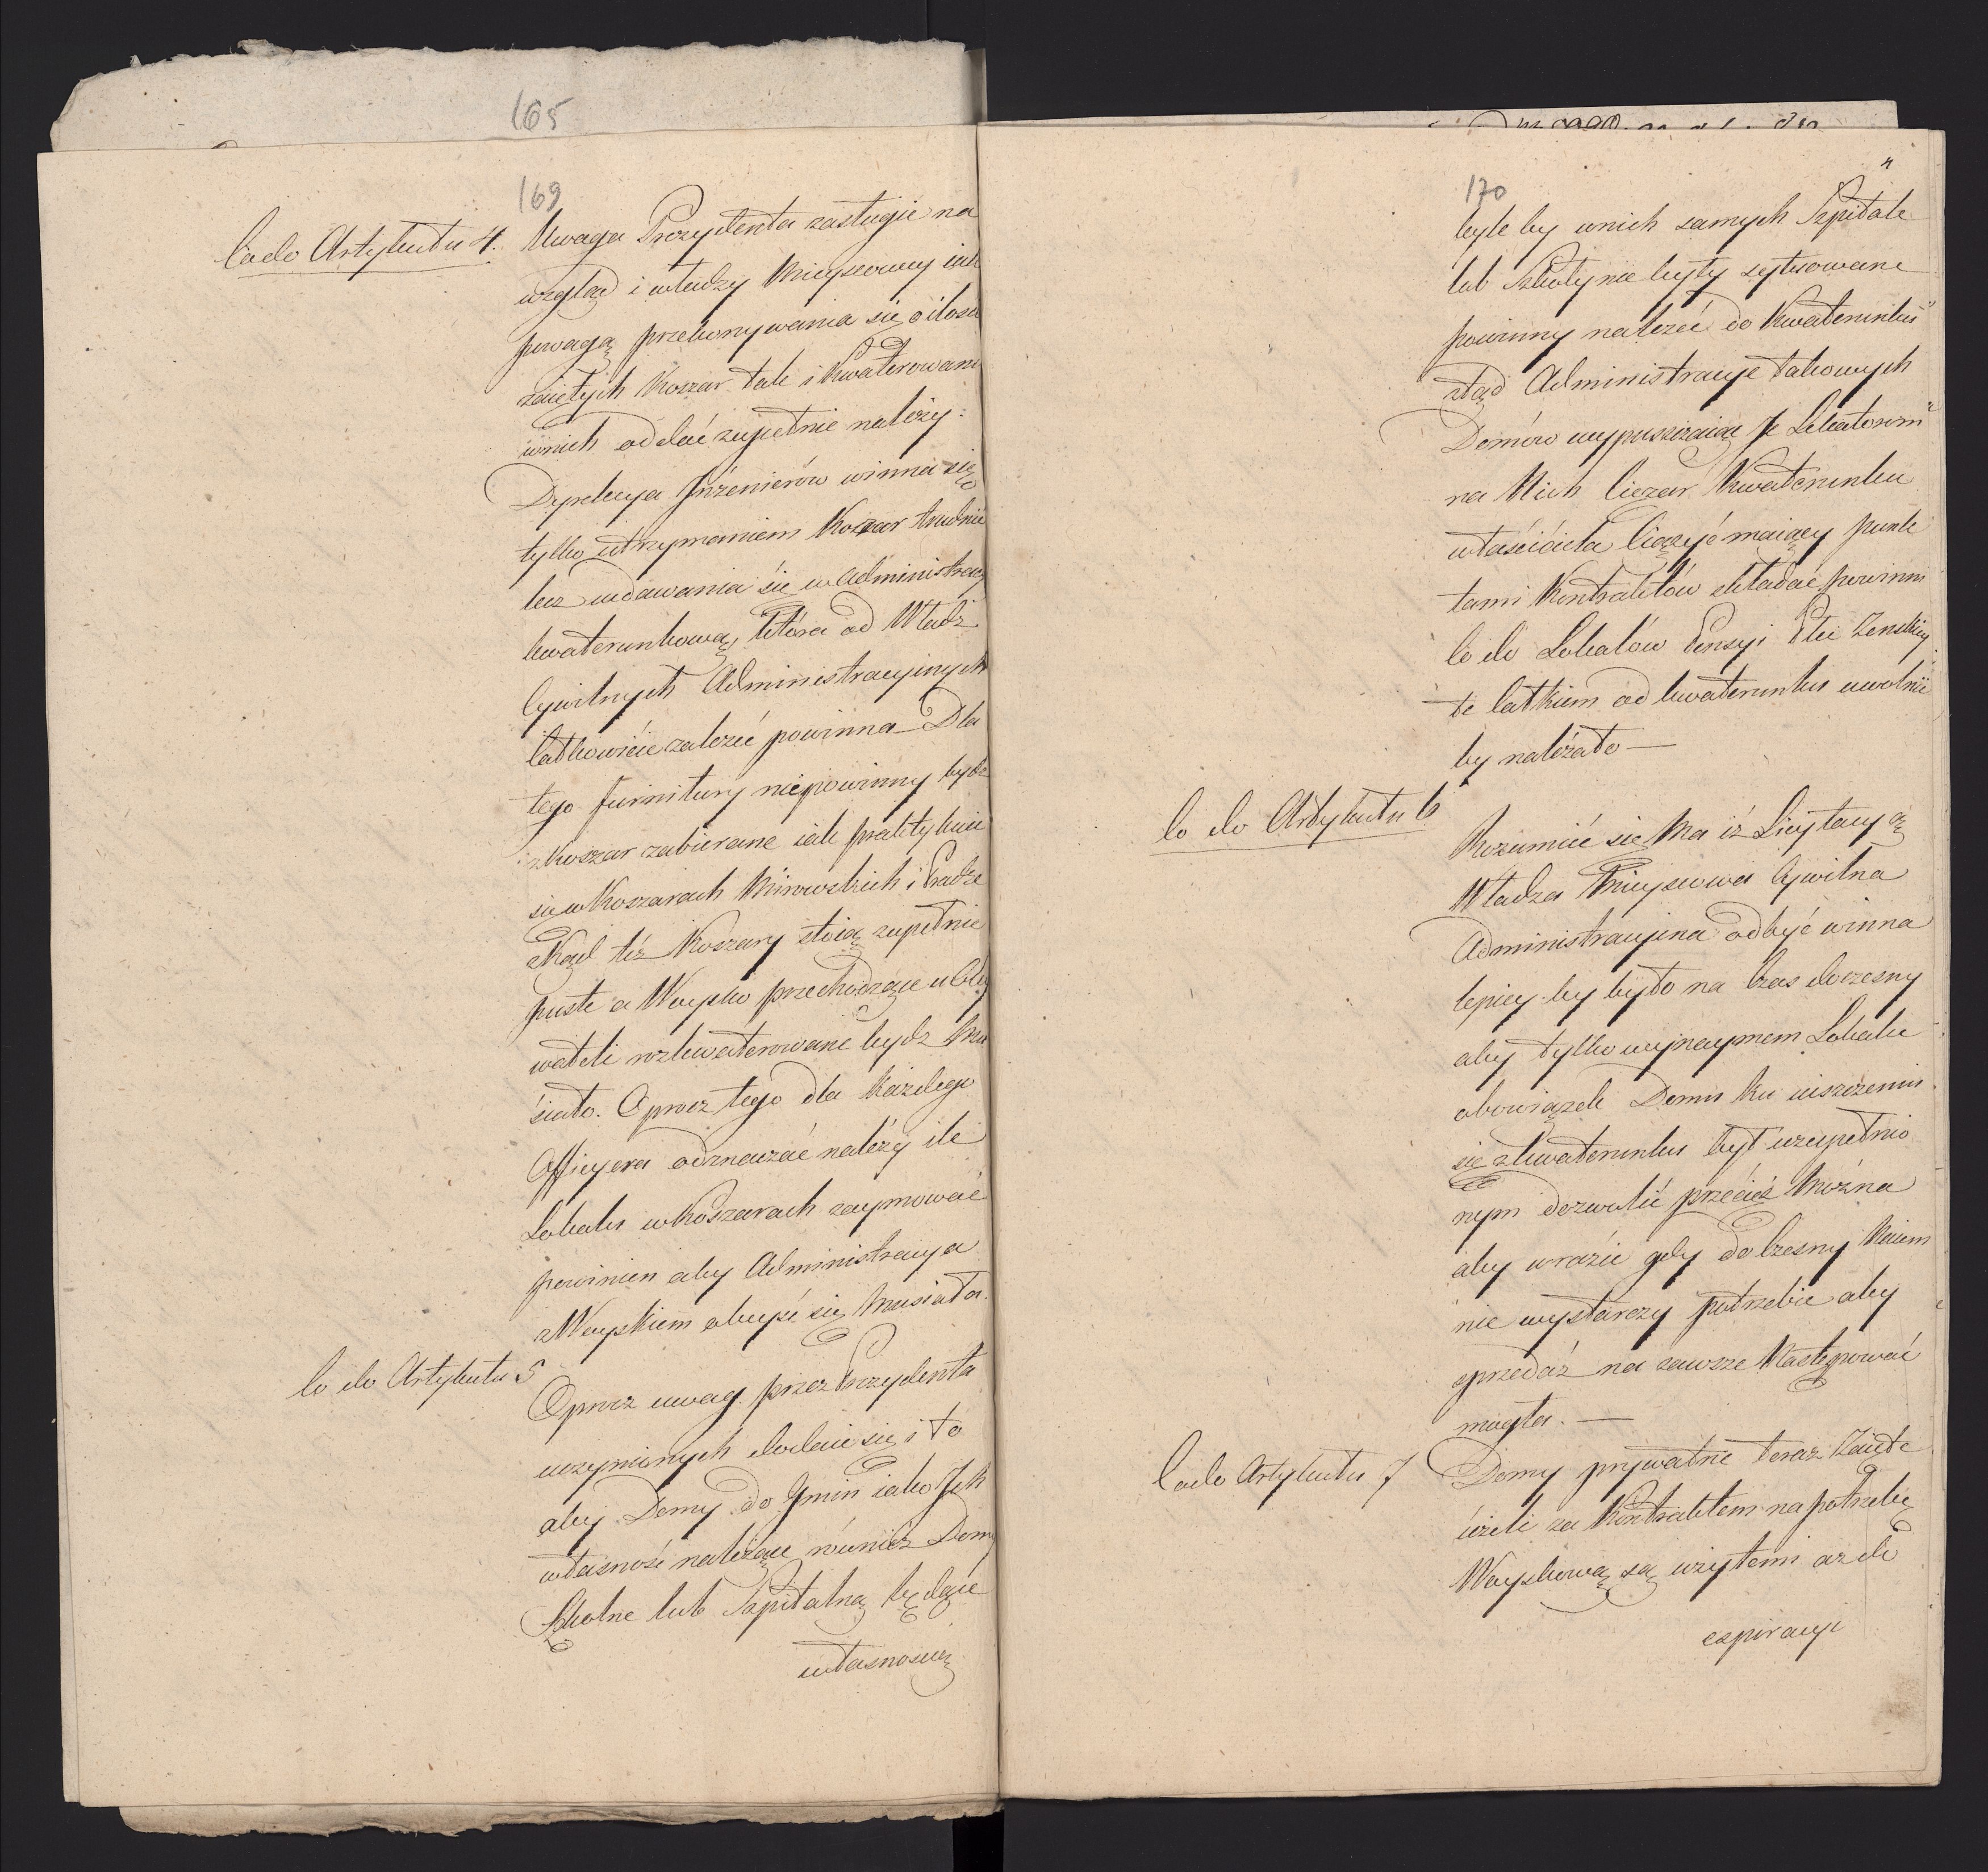 165
169
Co do Artykułu 4.
Uwaga Prezydenta zasługuie na
wzgląd i władzy Mieyscowey iak
powagą przekonywania się o ilości
zaiętych Koszar tak i kwaterowani
wnich oddać zupełnie należy.
Dyrekcya Jnżenierów winna się
tylko utrzymaniem Koszar trudnić
bez wdawania się w Administracyą
kwaterunkową, która od Władz
Cywilnych Administracyinych
całkowicie zależeć powinna Dla
tego furnitury niepowinny bydź
z Koszar zabierane iak praktykuie
się w Koszarach Mirowskich i
Zkąd też Koszary stoią zupełnie
puste a Woysko przechodzące u Oby
wateli rozkwaterowane bydz Mu
siało. Oprocz tego dla Każdego
Officyera oznaczać należy ile
Lokalu w Koszarach zaymować
powinien aby Administracya
z Woyskiem obeyść się Musiała.
Co do Artykułu 5
Oprocz uwag przez Prezydenta
uczynionych dodaie się i to
aby Domy do Gmin iako Jch
własność należące również Domy
Szkolne lub Szpitalną będące
własnoscią
170
4
byle by wnich samych Szpitale
lub Szkoły nie były sytuowane
powinny należeć do Kwaterunku
ztąd Administracye takowych
Domów wypuszczaiąc Je Lokatorom
na Nich Ciężar Kwaterunku
właściciela Ciążyć maiący punk
tami Kontraktów składać powinni
Co do Lokalów Pensyi Płci Zenskiey
te całkiem od kwaterunku uwolnić
by należało —
Co do Artykułu 6
Rozumieć się Ma iż Licytacyą
Władza Mieyscowa Cywilna
Administracyina odbyć winna
lepiey by było na Czas doczesny
aby tylko wynaymem Lokalu
obowiązek Domu ku uiszczeniu
się z kwaterunku był uzupełnio
nym dozwolić przecież Można
aby wrazie gdy doczesny Naiem
nie wystarczy potrzebie aby
sprzedaż na zawsze Następować
mogła. —
Co do Artykułu 7
Domy prywatne teraz Zaięte
ieżeli za Kontraktem na potrzebę
Woyskową są użytemi az do
expiracyi